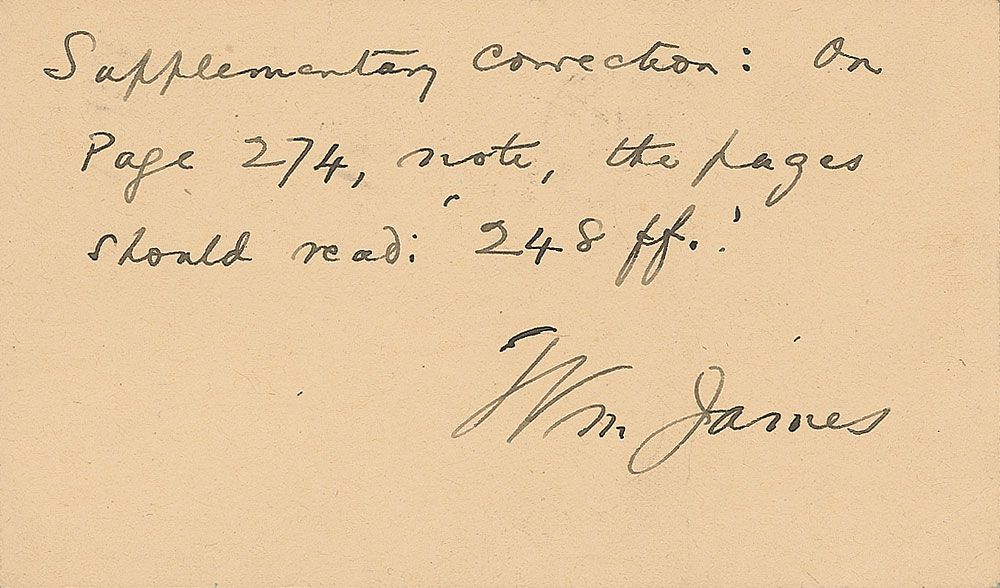 Supplementary correction: On
Page 274, note, the pages
should read: '248 ff.'
Wm James